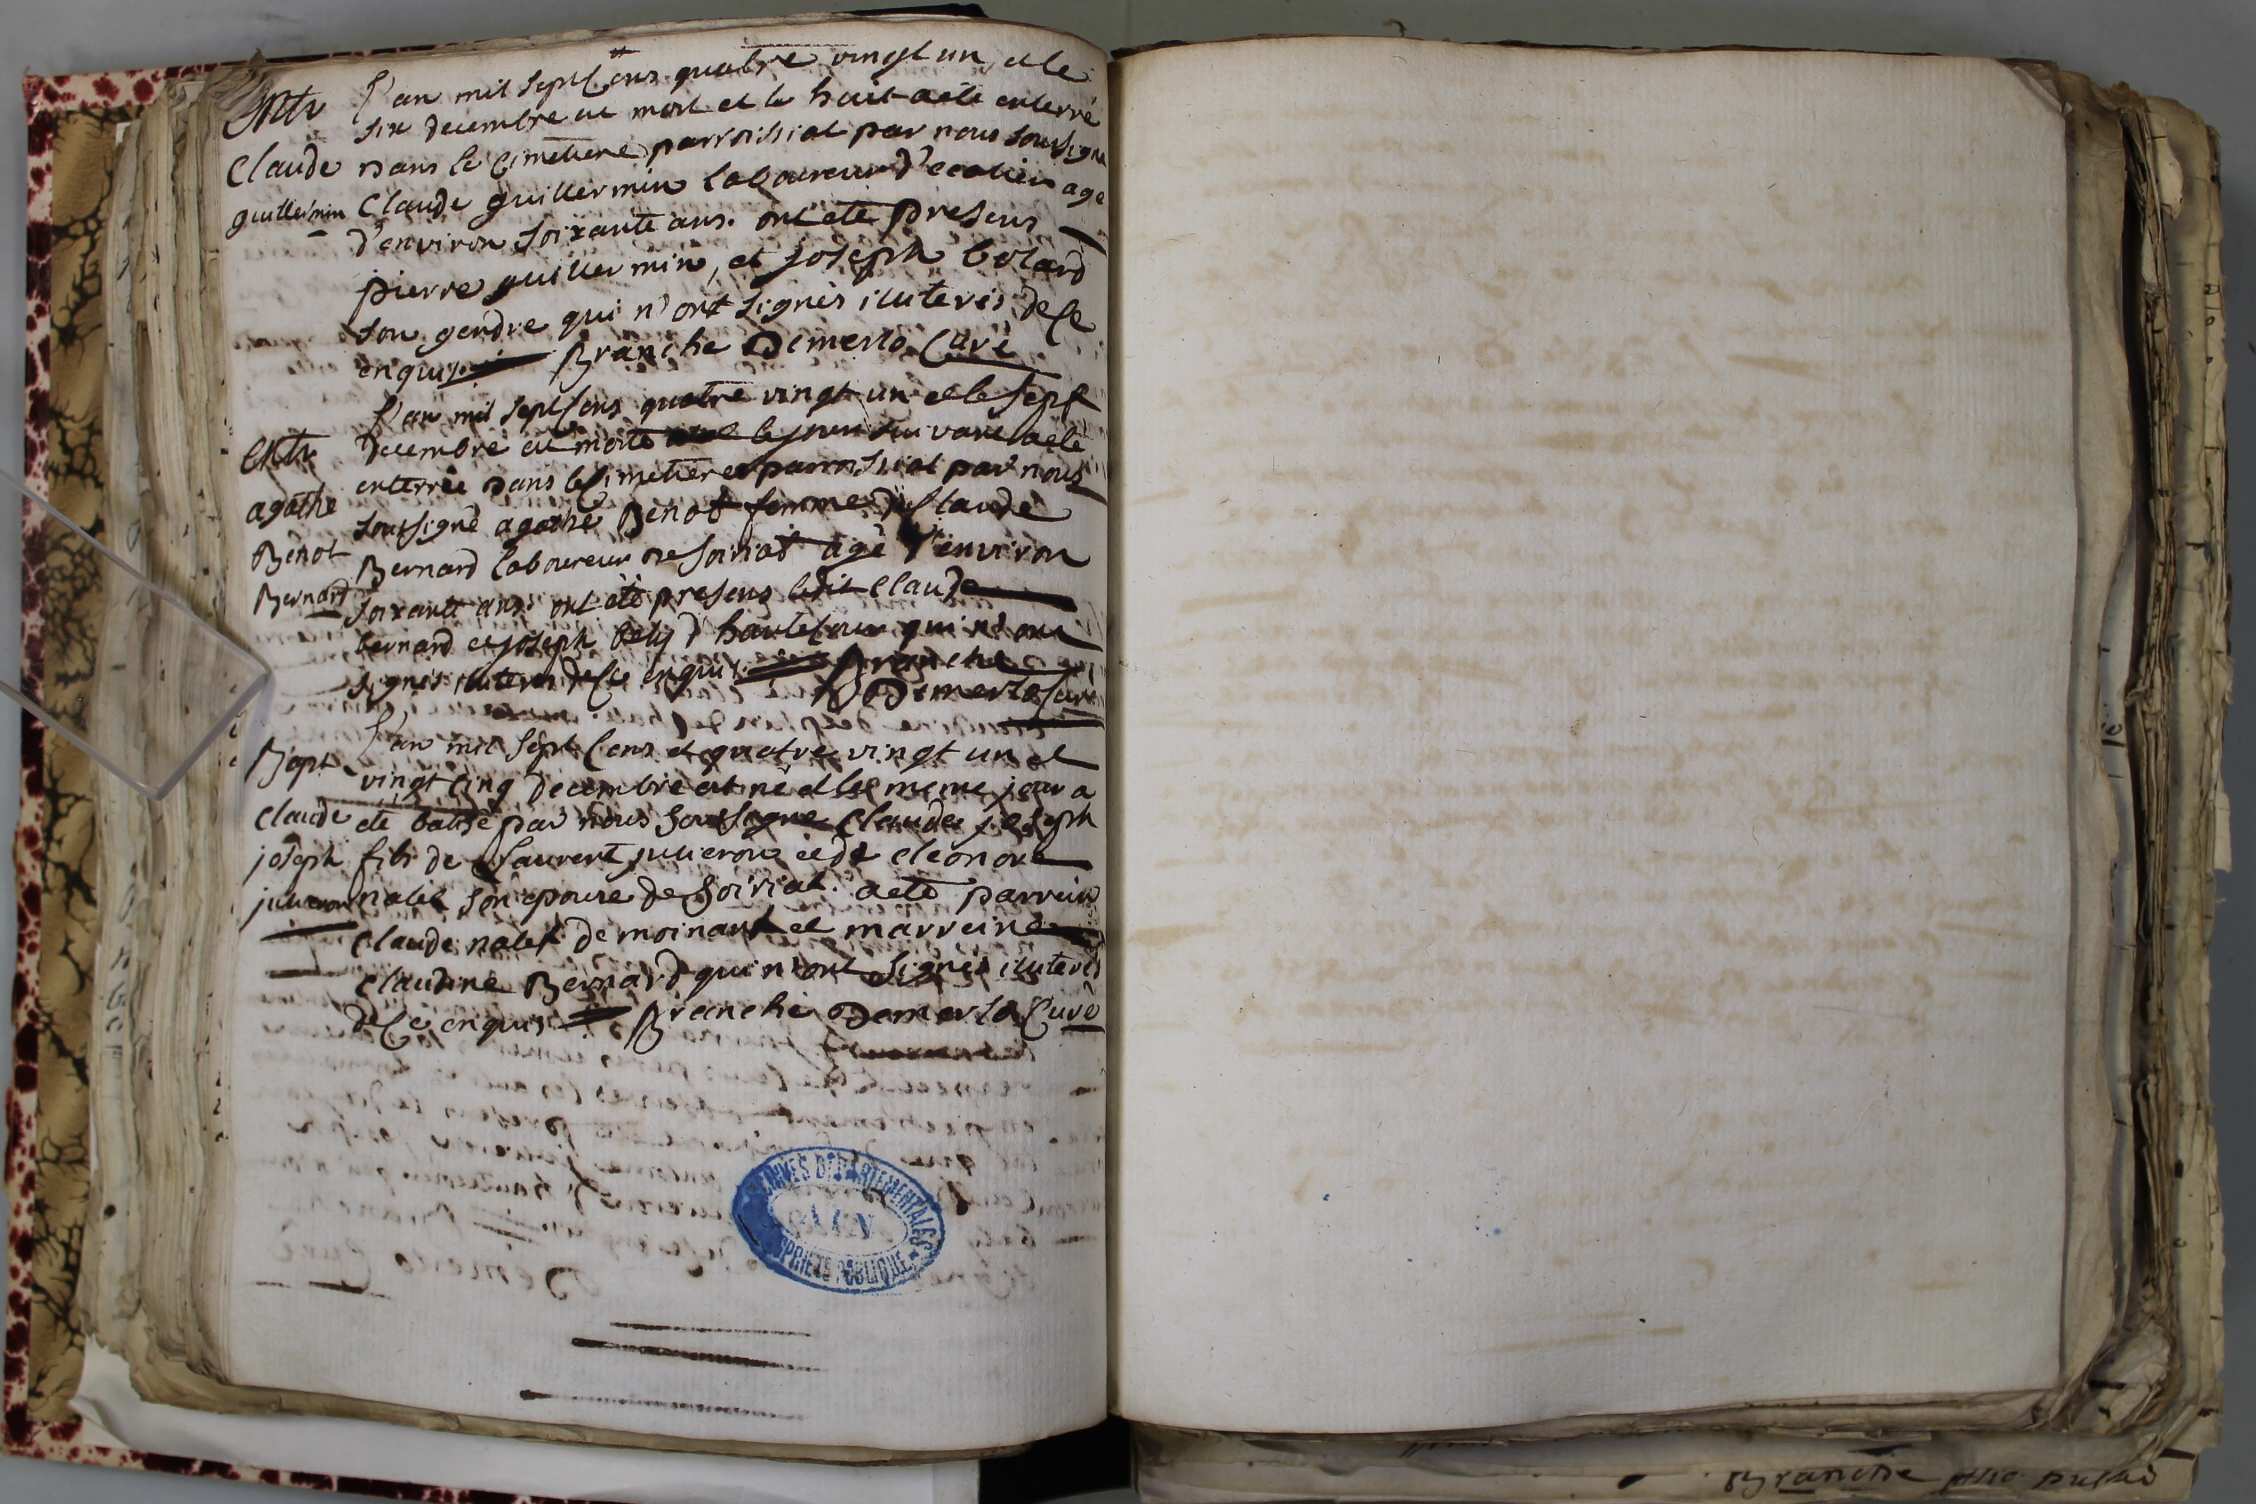 L'an mil sept Cens quatre vingt un et le
Entr
six decembre est mort et le huit a eté enterré
Claude
dans le Cimetiere parroissial par nous soussigné
guillermin
Claude guillermin laboureur d'ecolieu agé
d'environ soixante ans. ont eté presens
pierre guillermin, et joseph bolard
son gendre qui n'ont signés illiteris de Ce
enquis. Branche Demerlo Curé
L'an mil sept Cens quatre vingt un et le sept
Entr
decembre est morte et le jour suivant a eté
agathe
enterrée dans le Cimetiere parroissial par nous
Benot
soussigné agathe Benot femme de Claude
Bernard
Bernard laboureur de soiriat agé d'environ
soixante ans. ont eté presens ledit Claude
bernard et joseph bely d'hautecour qui n'ont
signés illiteris de Ce enquis. Branche
Demerlo Curé
L'an mil sept Cens et quatre vingt un et
Bapt
vingt cinq decembre est né et le meme jour a
Claude
eté batisé par nous soussigné Claude joseph
joseph
fils de Laurent jullieron et de eleonore
jullieron
nalet son epouse de soiriat. a eté parrein
Claude nalet de moinant et marreine
claudine Bernard qui n'ont signés illiteris
de Ce enquis Branche Demerlo Curé
ARCHIVES DÉPARTEMENTALES
PROPRIÉTÉ PUBLIQUE
Branche